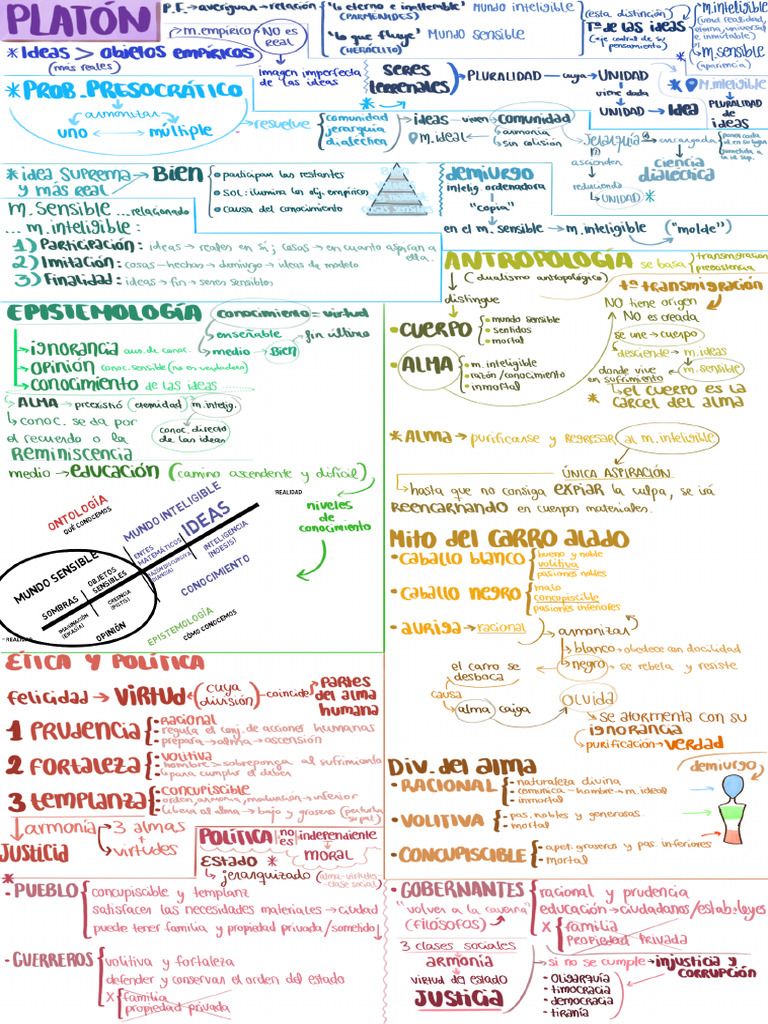 PLATÓN
P.F. → averiguan → relación
"lo eterno e inalterable" mundo inteligible
(PARMÉNIDES)
"lo que fluye" Mundo sensible
(HERÁCLITO)
(esta distinción)
Tª de las ideas
(eje central de su pensamiento)
m.inteligible
(verd realidad, eterna, universal e inmutable)
m.sensible
(apariencia)
* Ideas > objetos empíricos
(más reales)
m.empírico
NO es real
Imagen imperfecta de las ideas
seres terrenales
PLURALIDAD cuya UNIDAD
viene dada
UNIDAD → Idea
* m.inteligible
PLURALIDAD de ideas
* PROB. PRESOCRÁTICO
armonizar
uno ↔ múltiple
resuelve
comunidad
jerarquía
dialéctica
ideas viven comunidad
m.ideal
armonía
sin colisión
Jerarquía
ascienden
reduciendo
UNIDAD *
encargada
ciencia dialéctica
* idea suprema y más real → Bien
• participan las restantes
• Sol: ilumina los obj. empíricos
• causa del conocimiento
demiurgo
intelig. ordenadora
"copia"
en el m.sensible → m.inteligible ("molde")
m.sensible ... relacionado
... m.inteligible:
1) Participación: ideas → reales en sí; cosas → en cuanto aspiran a ella.
2) Imitación: cosas - hechas → demiurgo → ideas de modelo
3) Finalidad: ideas → fin → seres sensibles
ANTROPOLOGÍA se basa
transmigración
preexistencia
(dualismo antropológico)
distingue
• CUERPO
• mundo sensible
• sentidos
• mortal
• ALMA
• m.inteligible
• razón/conocimiento
• inmortal
tª transmigración
NO tiene origen
No es creada
se une → cuerpo
desciende → m.ideas
donde vive → m.sensible
en sufrimiento
* el cuerpo es la cárcel del alma
* ALMA → purificarse y regresar al m.inteligible
ÚNICA ASPIRACIÓN
hasta que no consiga expiar la culpa, se irá
reencarnando en cuerpos materiales.
EPISTEMOLOGÍA
conocimiento = virtud
enseñable
fin último
medio → Bien
ignorancia aus. de conoc.
opinión conoc. sensible (no es verdadero)
conocimiento de las ideas
ALMA → preexistió (eternidad) m.intelig.
conoc. directo de las ideas
conoc. se da por
el recuerdo o la
Reminiscencia
medio → educación (camino ascendente y difícil)
niveles de conocimiento
ONTOLOGÍA
QUÉ CONOCEMOS
MUNDO INTELIGIBLE
IDEAS
+REALIDAD
ENTES MATEMÁTICOS
INTELIGENCIA (NOESIS)
MUNDO SENSIBLE
OBJETOS SENSIBLES
SOMBRAS
CREENCIA (PISTIS)
IMAGINACIÓN (EIKASIA)
CONOCIMIENTO
OPINIÓN
- REALIDAD
EPISTEMOLOGÍA
CÓMO CONOCEMOS
Mito del carro alado
• caballo blanco
bueno y noble
volitiva
pasiones nobles
• caballo negro
malo
concupiscible
pasiones inferiores
• auriga → racional
armonizar
blanco → obedece con docilidad
negro → se rebela y resiste
el carro se desboca
causa
alma caiga
olvida
se atormenta con su ignorancia
purificación → verdad
ÉTICA Y POLÍTICA
felicidad → virtud (cuya división) coincide → partes del alma humana
1 PRUDENCIA
• racional
• regula el conj. de acciones humanas
• prepara → alma → ascensión
2 FORTALEZA
• volitiva
• hombre → sobreponga al sufrimiento
para cumplir el deber
3 templanza
• concupiscible
• orden, armonía, moderación → inferior
• libera el alma → bajo y grosero
armonía
3 almas
+
virtudes
Justicia
POLÍTICA no es independiente
MORAL
Estado *
jerarquizado (alma-virtudes-clase social)
Div. del alma
demiurgo
• RACIONAL
• naturaleza divina
• comunica - hombre → m.ideal
• inmortal
• VOLITIVA
• pas. nobles y generosas
• mortal
• CONCUPISCIBLE
• apet. groseros y pas. inferiores
• mortal
*
• PUEBLO
concupiscible y templanz
satisfacer las necesidades materiales → ciudad
puede tener familia y propiedad privada/sometido
• GUERREROS
volitiva y fortaleza
defender y conservar el orden del estado
X familia
propiedad privada
• GOBERNANTES
"volver a la caverna"
(FILÓSOFOS)
racional y prudencia
educación → ciudadanos/estab. leyes
X familia
propiedad privada
3 clases sociales
armonía
virtud del estado
JUSTICIA
si no se cumple → injusticia y corrupción
• oligarquía
• timocracia
• democracia
• tiranía